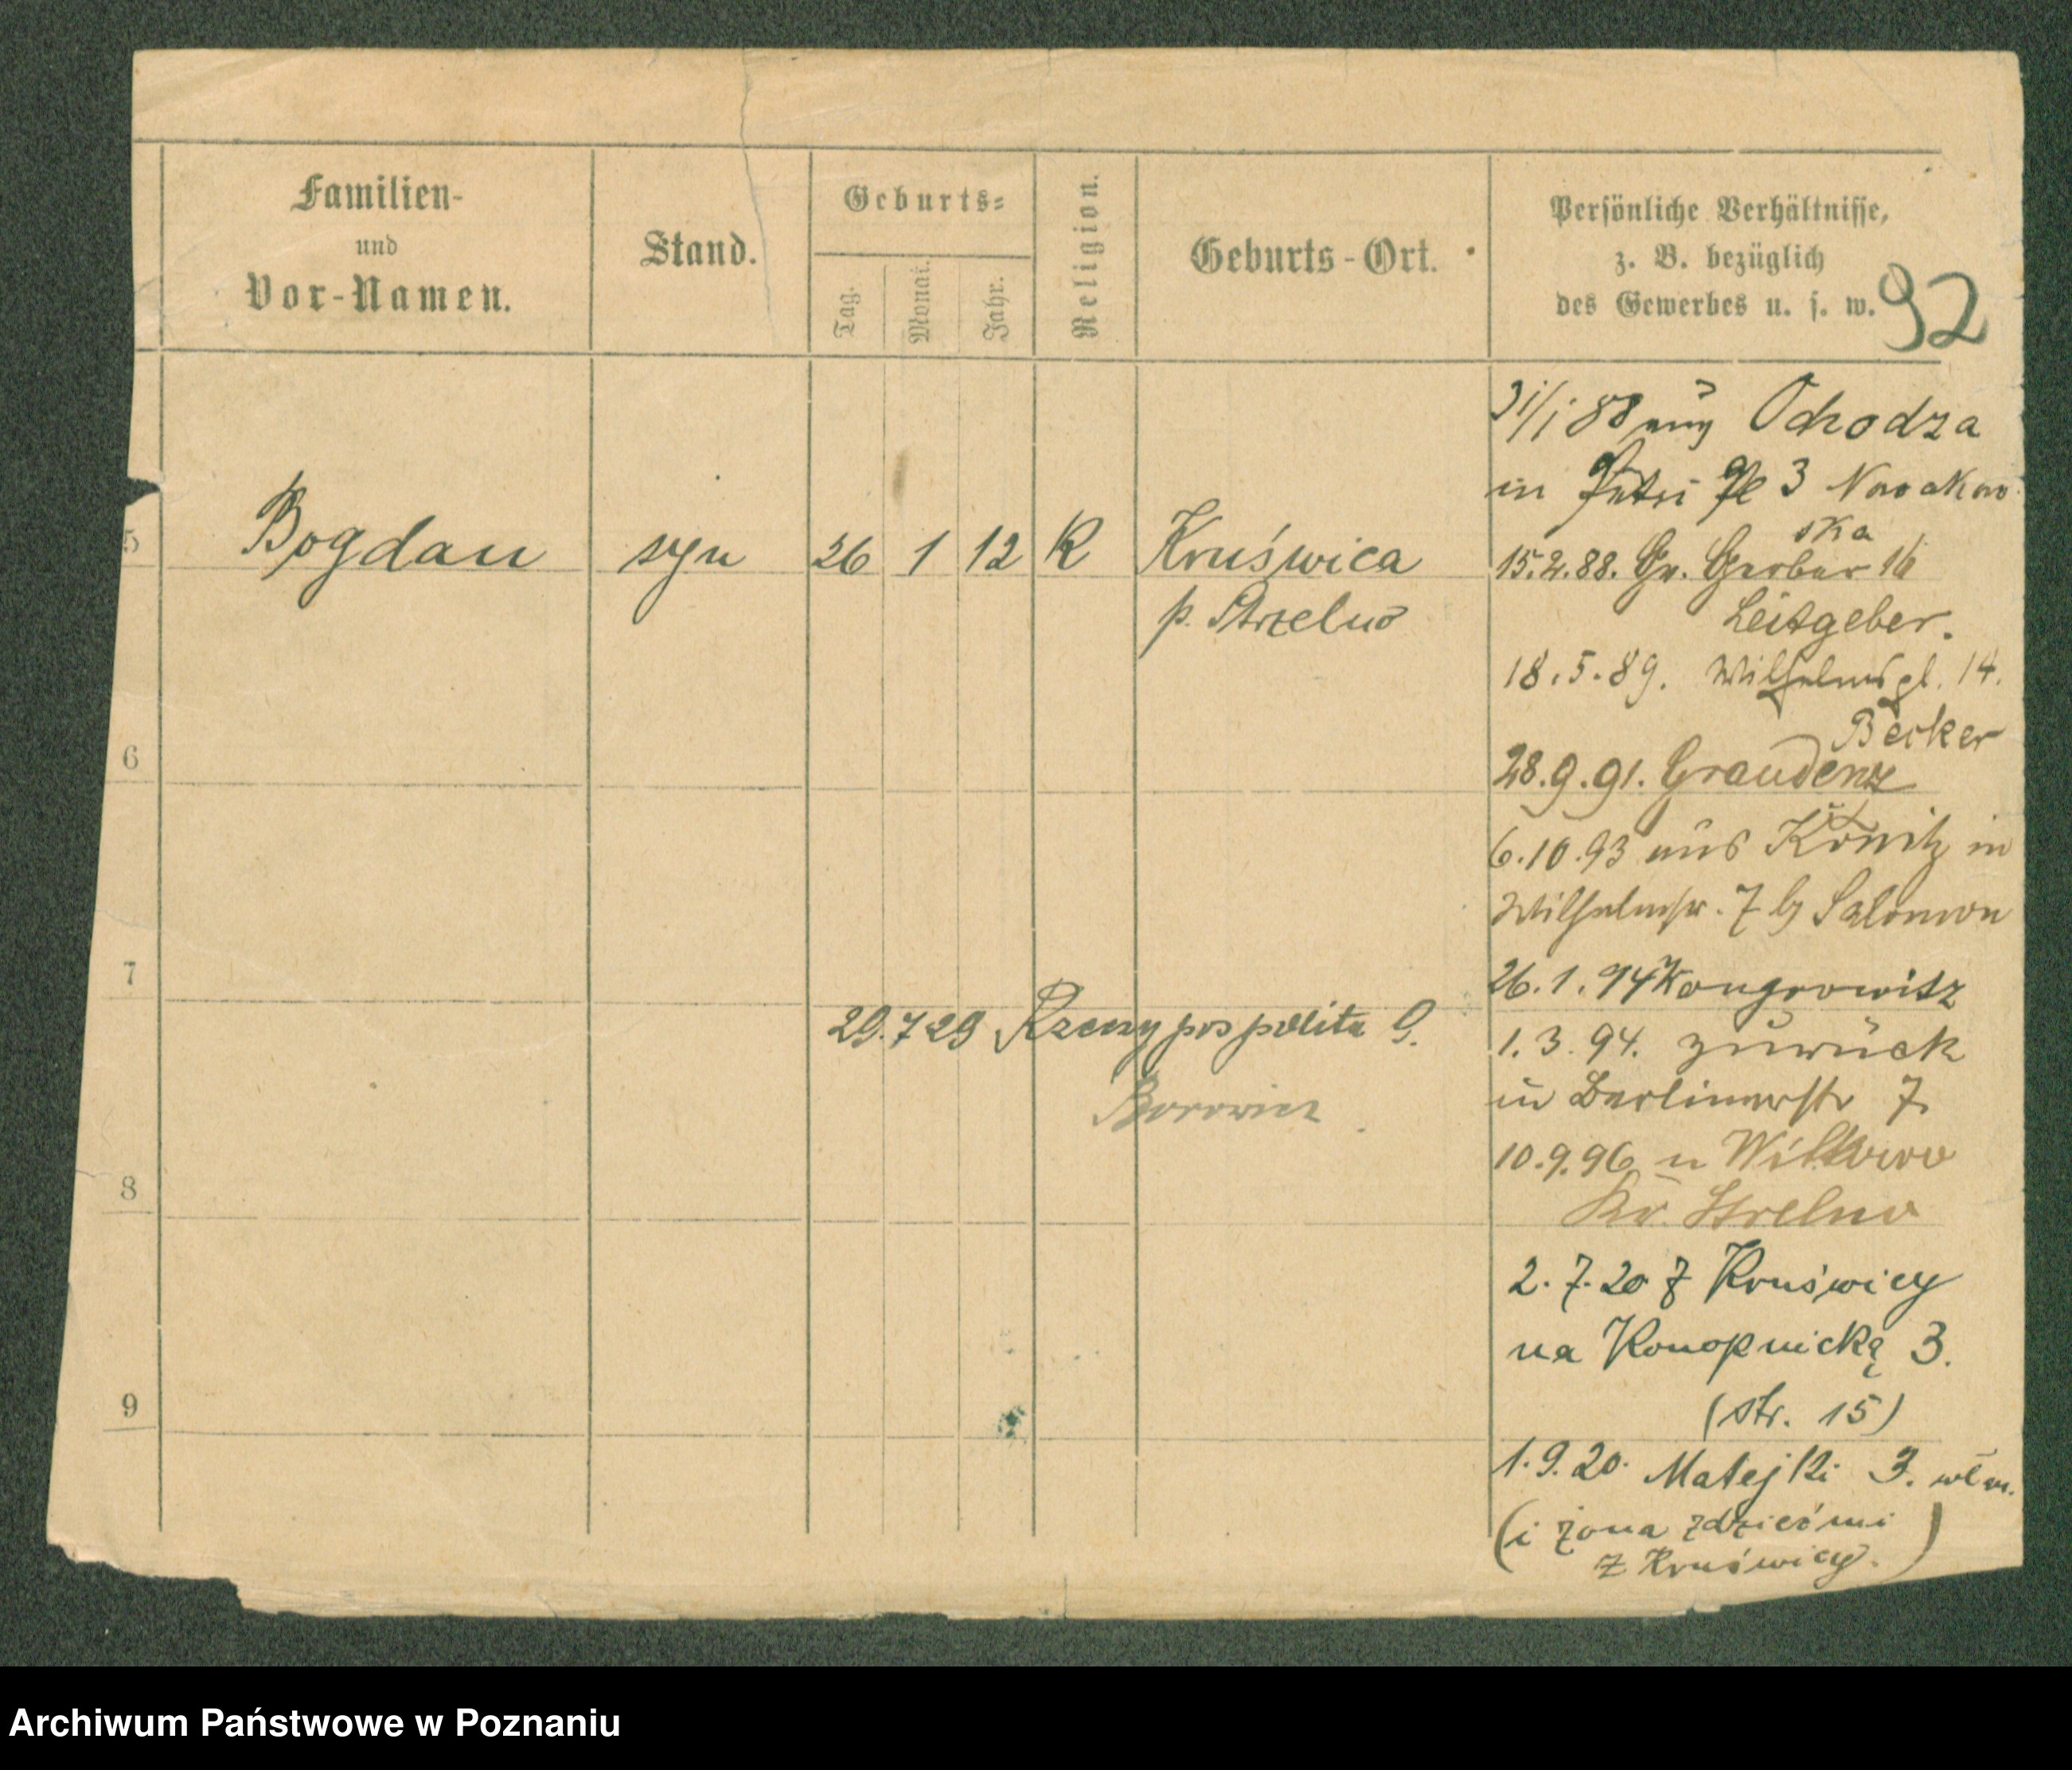 Familien-
und
Vor-Namen.
Stand.
Geburts-
Tag.
Monat.
Jahr.
Religion.
Geburts-Ort.
Persönliche Verhältnisse,
z. B. bezüglich
des Gewerbes u. s. w.
92
31/1 88 aus Ochodza
in Petri Pl 3 Nowakow
ska
5 Bogdan syn 26 1 12 K Kruświca
p. Strzelno
15.2.88. Gr. Gerber 16
Leitgeber.
18.5.89. Wilhelmspl. 14.
Becker
6
28.9.91. Graudenz
6.10.93 aus Konitz in
Wilhelmstr. 7 b/ Salomon
7
26.1.94 Wongrowitz
29.7 29 Rzeczypospolita 9.
1.3.94. zurück
in Berlinerstr 7
10.9.96 n
8
Kr. Strelno
2.7.20 z Kruświcy
na Konopnicką 3.
9
(str. 15)
1.9.20. Matejki 3.
(i żona z dziećmi
z Kruświcy.)
Archiwum Państwowe w Poznaniu